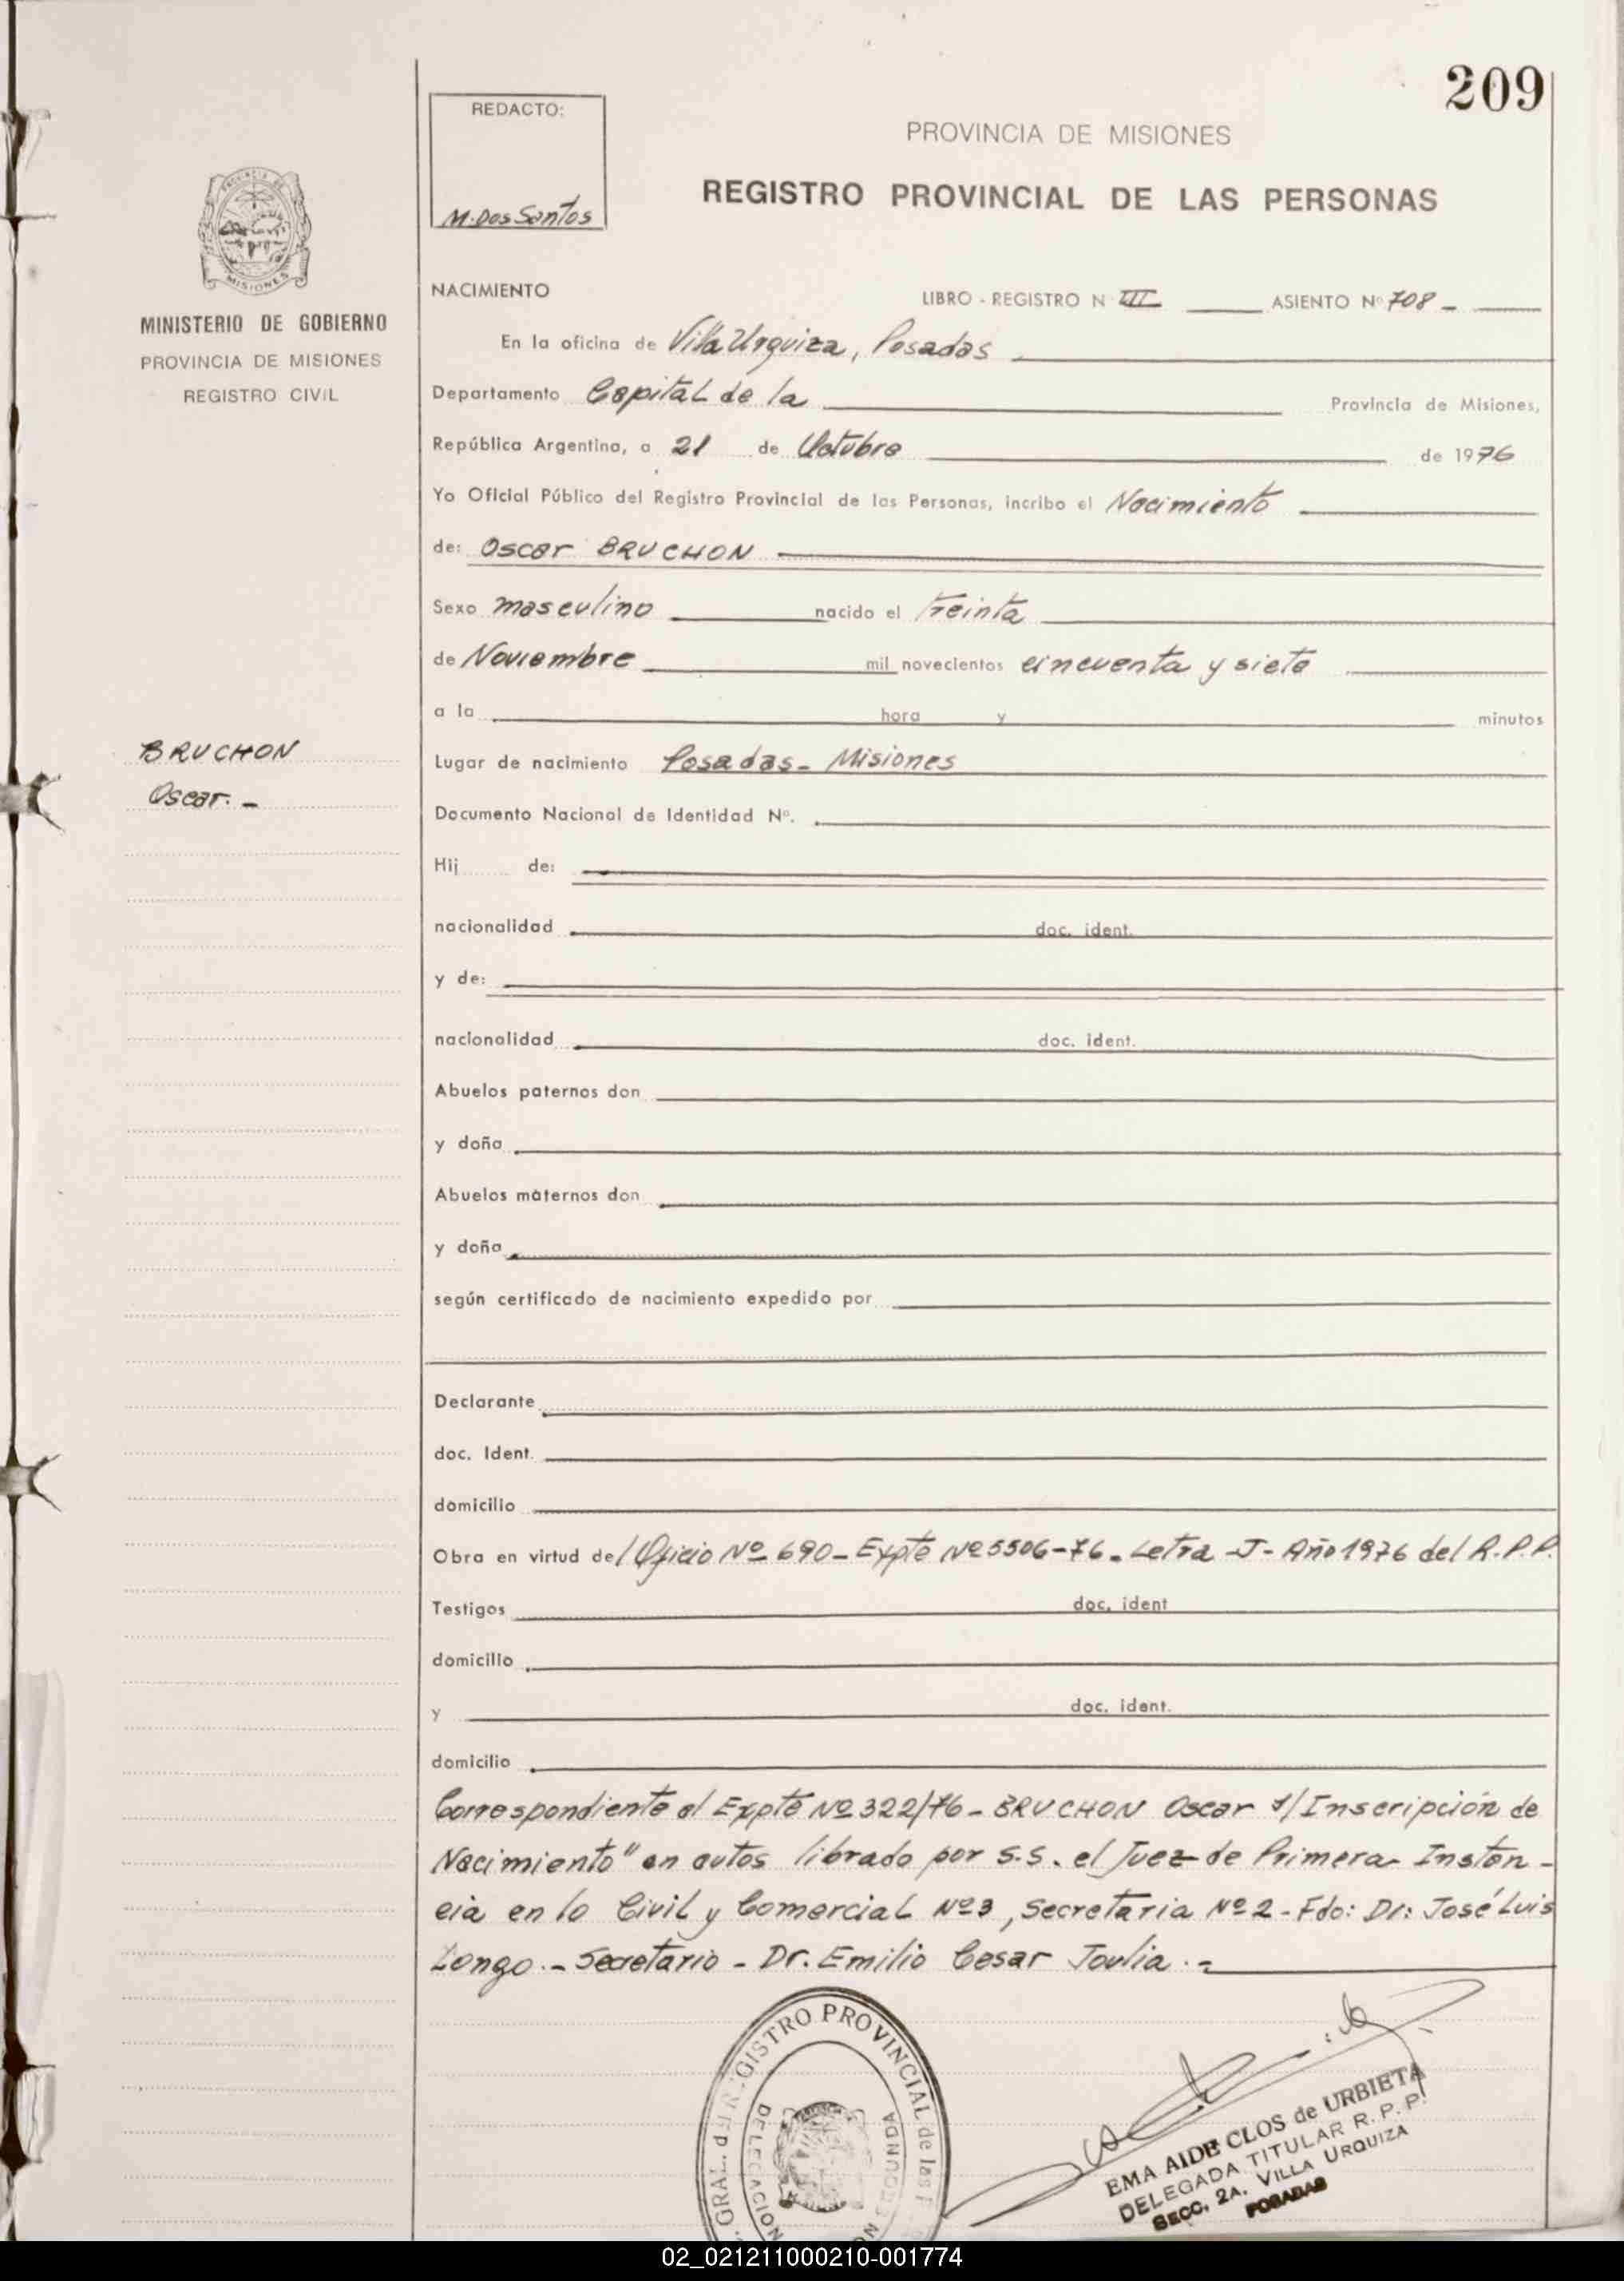 209
REDACTO:
M. Dos Santos
PROVINCIA DE MISIONES
REGISTRO PROVINCIAL DE LAS PERSONAS
MISIONES
MINISTERIO DE GOBIERNO
PROVINCIA DE MISIONES
REGISTRO CIVIL
NACIMIENTO LIBRO - REGISTRO N III ASIENTO Nº 708 -
En la oficina de Villa Urquiza, Posadas
Departamento Capital de la Provincia de Misiones,
República Argentina, a 21 de Octubre de 1976
Yo Oficial Público del Registro Provincial de las Personas, incribo el Nacimiento
de: Oscar BRUCHON
Sexo masculino nacido el treinta
de Noviembre mil novecientos cincuenta y siete
a la hora y minutos
BRUCHON
Oscar. -
Lugar de nacimiento Posadas - Misiones
Documento Nacional de Identidad Nº.
Hij de:
nacionalidad doc. ident.
y de:
nacionalidad doc. ident.
Abuelos paternos don
y doña
Abuelos maternos don
y doña
según certificado de nacimiento expedido por
Declarante
doc. Ident.
domicilio
Obra en virtud del Oficio Nº 690 - Expte Nº 5506-76 - Letra -J- Año 1976 del R.P.P.
Testigos doc. ident
domicilio
y doc. ident.
domicilio
Correspondiente al Expte Nº 322/76 - BRUCHON Oscar s/Inscripción de
Nacimiento" en autos librado por S.S. el Juez de Primera Instan-
cia en lo Civil y Comercial Nº3, Secretaria Nº 2 - Fdo: Dr: José Luis
Longo. - Secretario - Dr. Emilio Cesar Joulia. -
GRAL. del REGISTRO PROVINCIAL de las P
DELEGACION SEGUNDA
EMA AIDE CLOS de URBIETA
DELEGADA TITULAR R. P. P.
SECC. 2A. VILLA URQUIZA
POSADAS
02_021211000210-001774